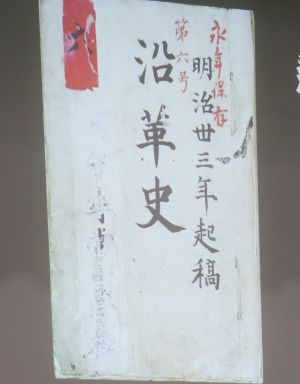 永年保存
明治卅三年起稿
第六号
沿革史
六